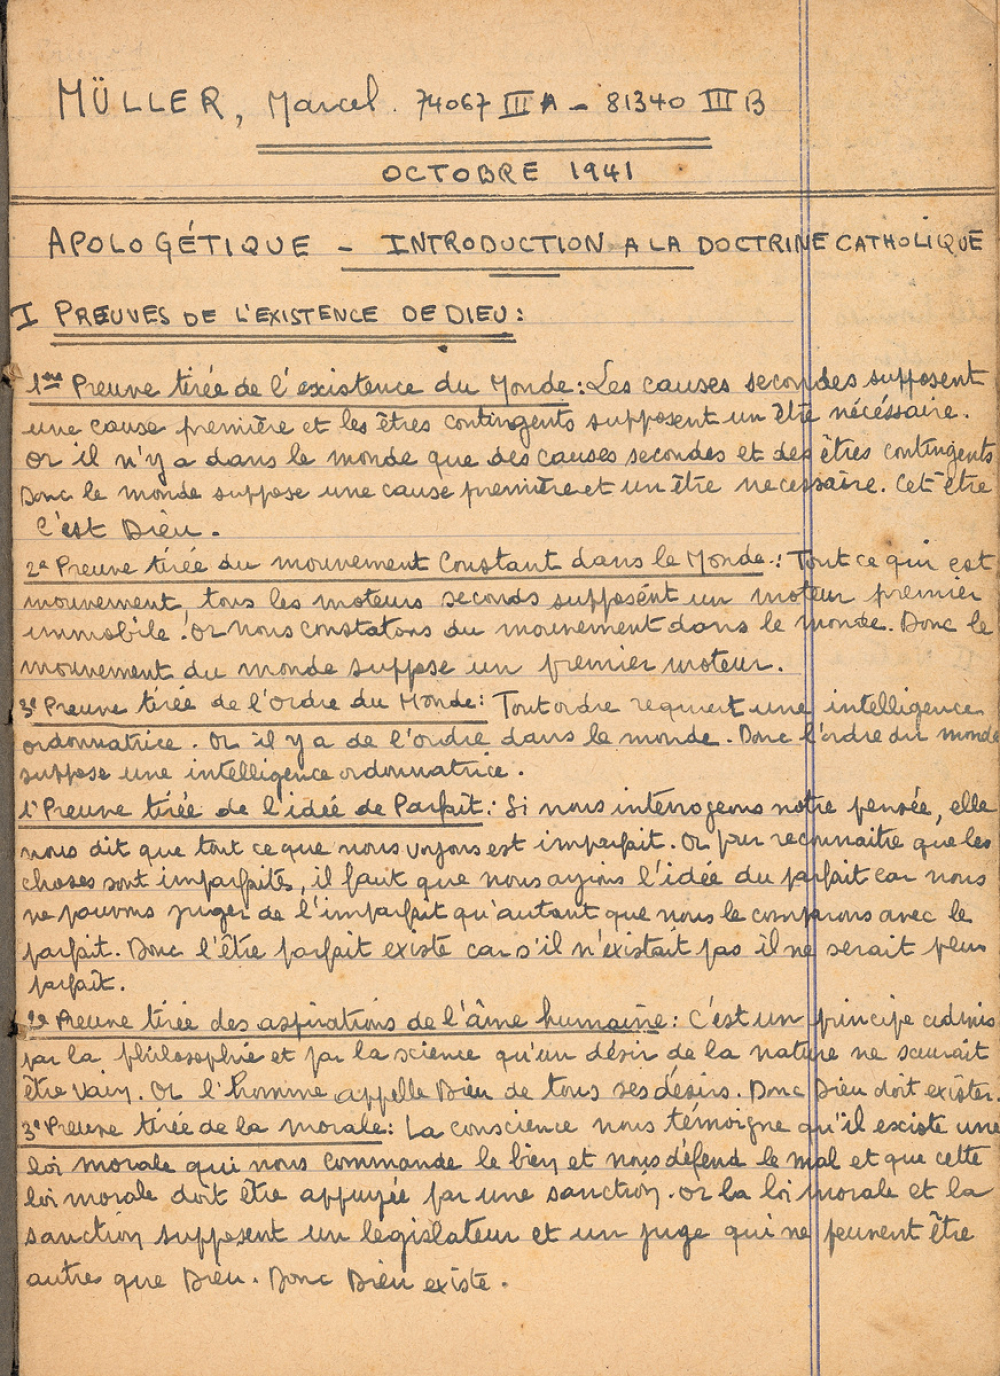 MÜLLER, Marcel. 74067 III A - 81340 III B
OCTOBRE 1941
APOLOGÉTIQUE - INTRODUCTION A LA DOCTRINE CATHOLIQUE
I PREUVES DE L'EXISTENCE DE DIEU:
1ère Preuve tirée de l'existence du Monde: Les causes secondes supposent
une cause première et les êtres contingents supposent un être nécéssaire.
Or il n'y a dans le monde que des causes secondes et des êtres contingents
Donc le monde suppose une cause première et un être necessaire. Cet être
c'est Dieu.
2e Preuve tirée du mouvement Constant dans le Monde.: Tout ce qui est
mouvement, tous les moteurs seconds supposent un moteur premier
immobile. Or nous constatons du mouvement dans le monde. Donc le
mouvement du monde suppose un premier moteur.
3e Preuve tirée de l'Ordre du Monde: Tout ordre requiert une intelligence
ordonnatrice. Or il y a de l'ordre dans le monde. Donc l'ordre du monde
suppose une intelligence ordonnatrice.
1e Preuve tirée de l'idée de Parfait.: Si nous interrogeons notre pensée, elle
nous dit que tout ce que nous voyons est imparfait. Or pour reconnaitre que les
choses sont imparfaites, il faut que nous ayions l'idée du parfait car nous
ne pouvons juger de l'imparfait qu'autant que nous le comparons avec le
parfait. Donc l'être parfait existe car s'il n'existait pas il ne serait plus
parfait.
2e Preuve tirée des aspirations de l'âme humaine: C'est un principe admis
par la philosophie et par la science qu'un désir de la nature ne saurait
être vain. Or l'homme appelle Dieu de tous ses désirs. Donc Dieu doit exister.
3e Preuve tirée de la morale: La conscience nous témoigne qu'il existe une
loi morale qui nous commande le bien et nous défend le mal et que cette
loi morale doit être appuyée par une sanction. Or la loi morale et la
sanction supposent un législateur et un juge qui ne peuvent être
autre que Dieu. Donc Dieu existe.